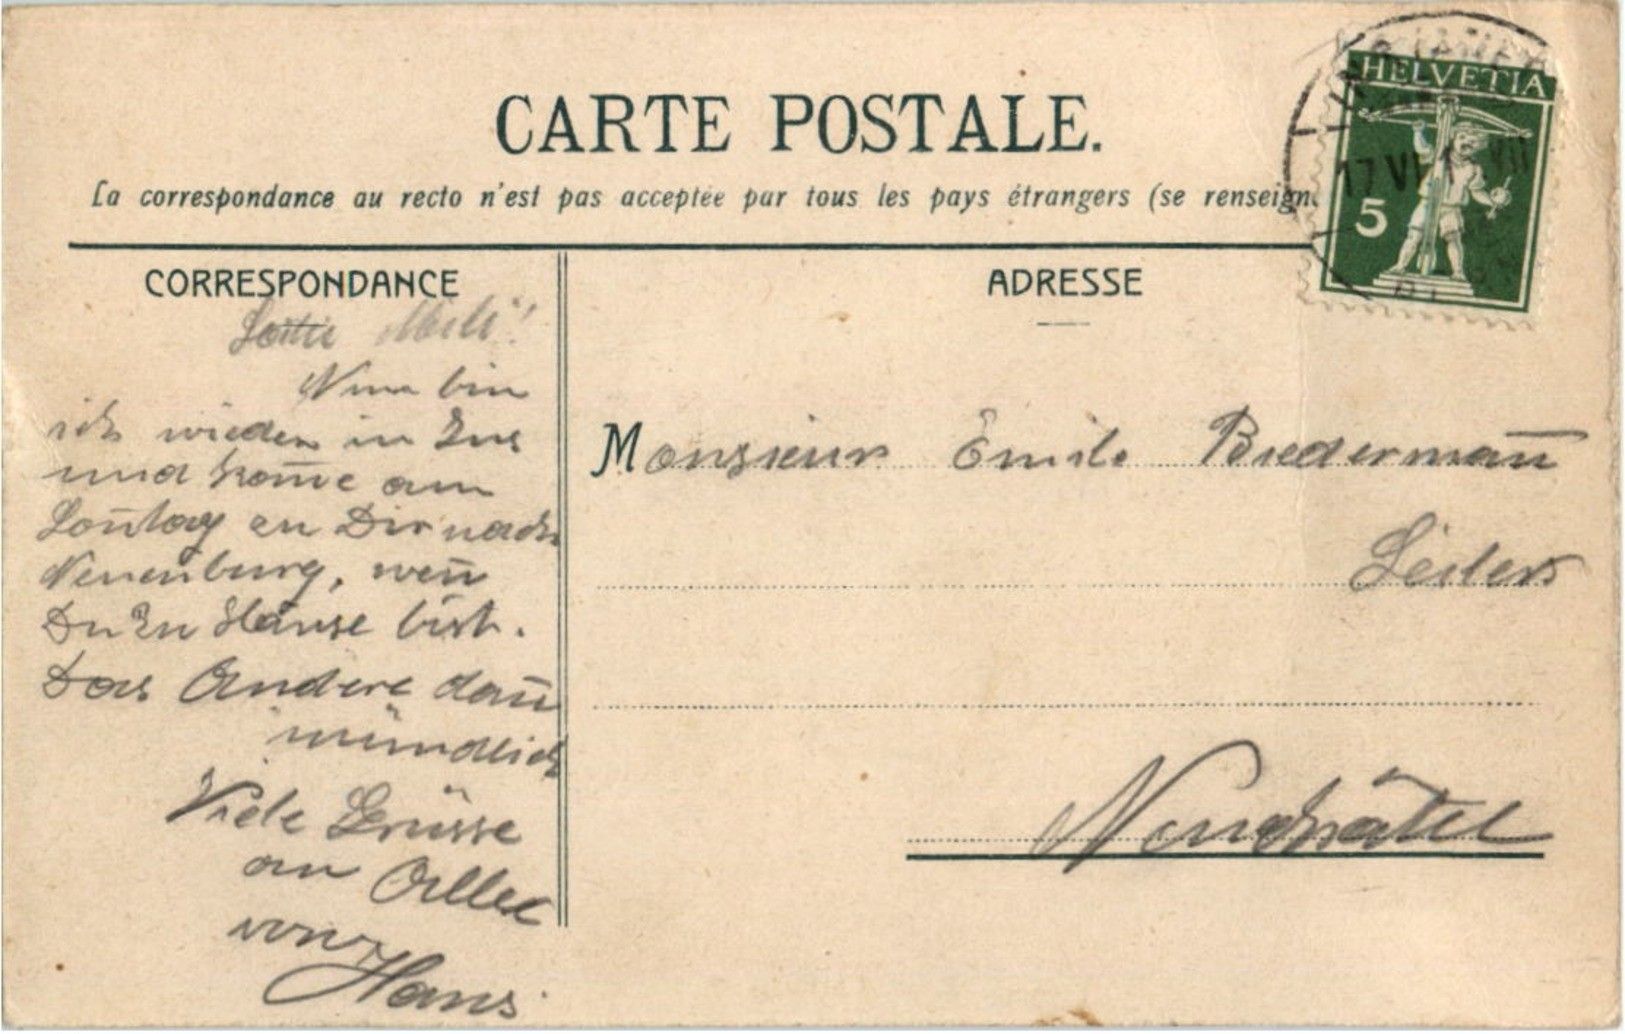 CARTE POSTALE.
La correspondance au recto n'est pas acceptée par tous les pays étrangers (se renseign
HELVETIA
5
17 VI 1
VII
CORRESPONDANCE
ADRESSE
bin
ich wieder in Ins
und kom̅e am
Son̅tag zu Dir nach
Neuenburg, wen̅
Du zu Hause bist.
Das Andere dan̅
mündlich
Viele Grüsse
an Alle
von
Hans
Monsieur Emile Biederman̅
Neuchâtel